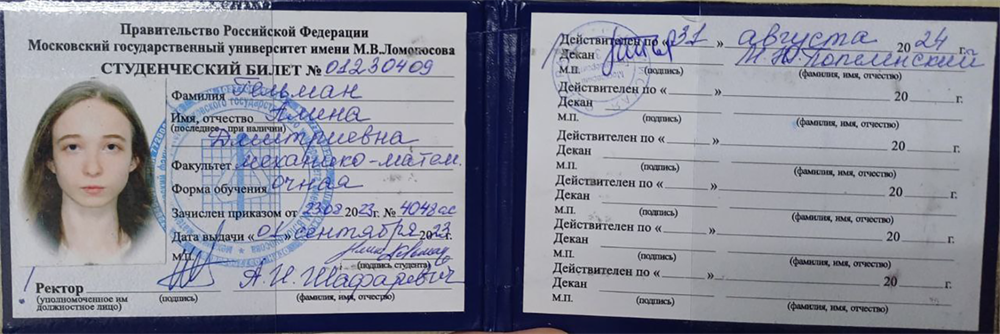 Правительство Российской Федерации
Московский государственный университет имени М.В.Ломоносова
СТУДЕНЧЕСКИЙ БИЛЕТ № 01230409
Фамилия Гельман
Имя, отчество Амина
(последнее - при наличии)
Дмитриевна
Факультет механико-матем.
Форма обучения очная
Зачислен приказом от 23 08 2023г. № 4048ас
Дата выдачи «01» сентября 2023г.
М.П.
(подпись студента)
Ректор А.И. Шафаревич
(уполномоченное им должностное лицо)
(подпись) (фамилия, имя, отчество)
Действителен по «31» августа 2024 г.
Декан
М.П. (подпись) (фамилия, имя, отчество)
Действителен по « » 20 г.
Декан
М.П. (подпись) (фамилия, имя, отчество)
Действителен по « » 20 г.
Декан
М.П. (подпись) (фамилия, имя, отчество)
Действителен по « » 20 г.
Декан
М.П. (подпись) (фамилия, имя, отчество)
Действителен по « » 20 г.
Декан
М.П. (подпись) (фамилия, имя, отчество)
Действителен по « » 20 г.
Декан
М.П. (подпись) (фамилия, имя, отчество)